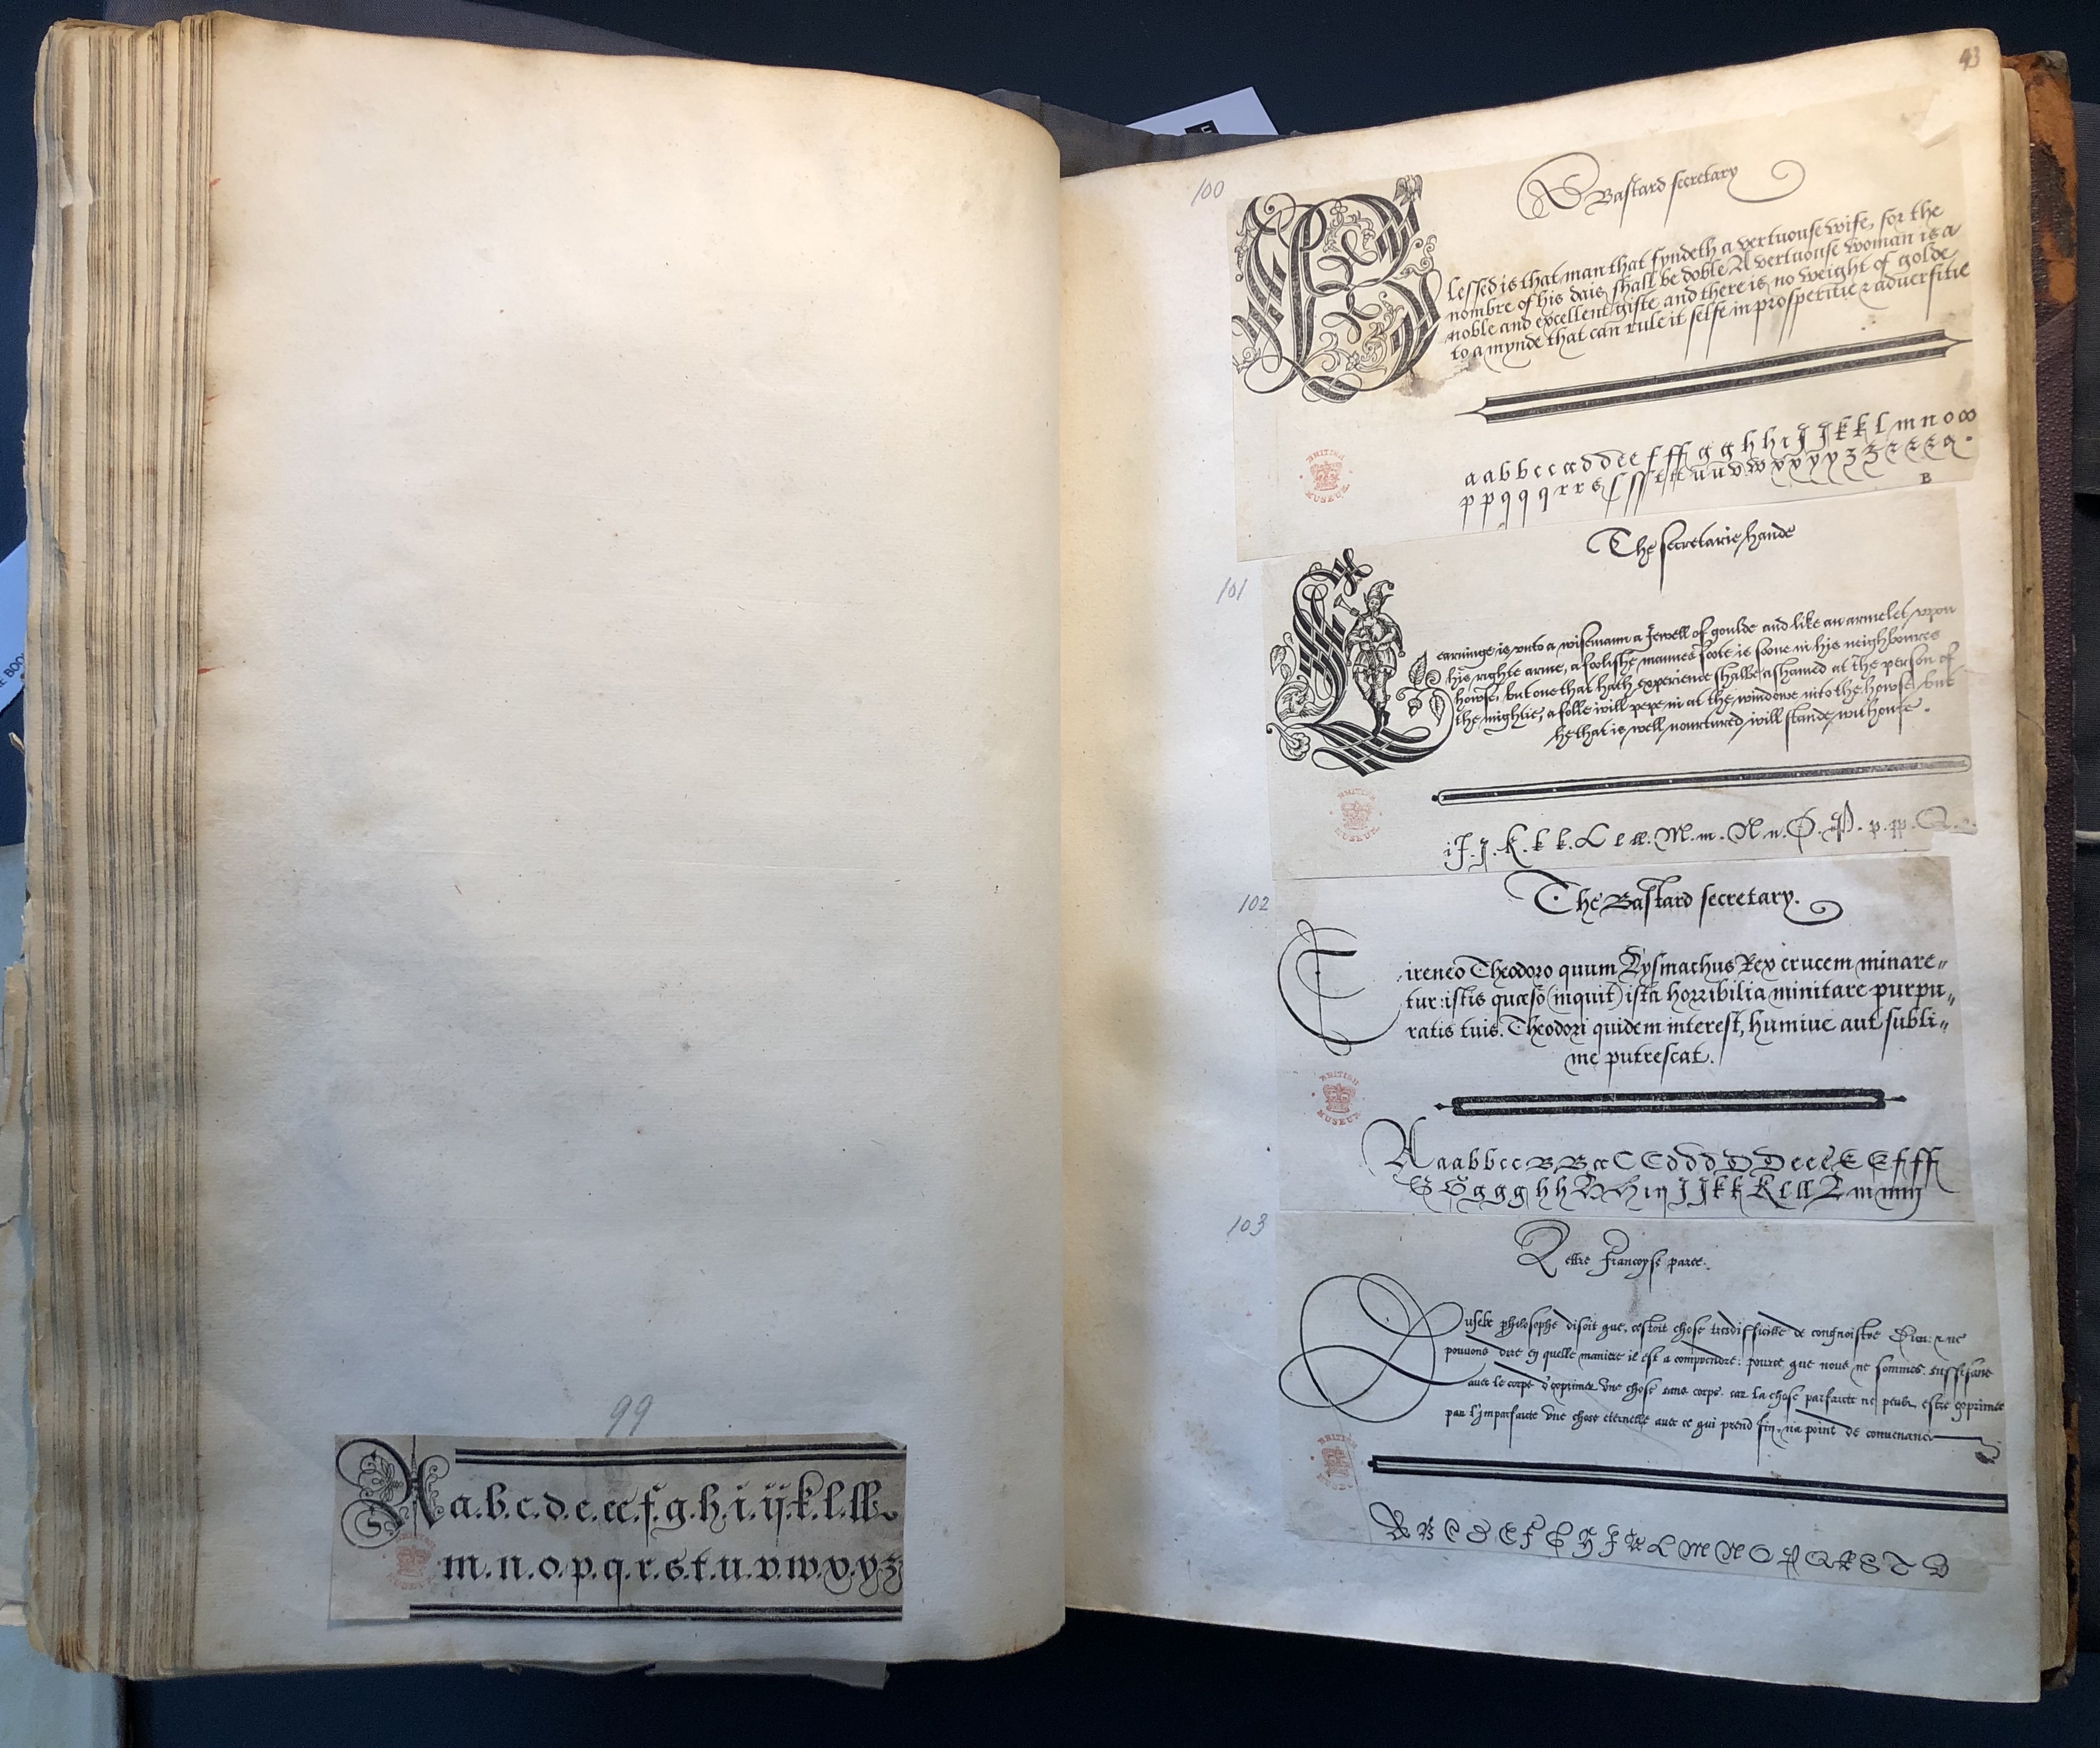 99
A a.b.c.d.e.ee.f.g.h.i.ij.k.l.ll.
m.n.o.p.q.r.s.t.u.v.w.x.y.z
43
100
Bastard secretary
Blessed is that man that fyndeth a vertuouse wife, for the
nombre of his dais shall be doble A vertuouse woman is a
noble and excellent gifte and there is no weight of golde
to a mynde that can rule it selfe in prosperitie & aduersitie
a a b b c c œ d d e e f ff g g h h i J J k k l m n o œ
p p q q q r r s ſ ſſ t tt u u v w x x y y z z
B
BRITISH MUSEUM
The secretarie hande
101
Learninge is vnto a wisemann a Jewell of goulde and like an armelet vpon
his righte arme, a foolishe mannes foote is soone in his neighboures
howse, but one that hath experience shalbe ashamed at the person of
the mightie, a folle will pepe in at the windowe into the howse but
he that is well nourtured will stande without.
BRITISH MUSEUM
i J. j. K. k k. L l ll. M. m. N n. O. P. p. pp. Q.
102
The Bastard secretary.
Cireneo Theodoro quum Lysimachus Rex crucem minare〃
tur: istis quæso (inquit) ista horribilia minitare purpu〃
ratis tuis. Theodori quidem interest, humiue aut subli〃
me putrescat.
BRITISH MUSEUM
A a a b b c c B B œ C C d d d D D e e e E E f ff
G G g g g h h H H i ij J J k k K l ll L m m m
103
Lettre Francoyse paree.
Dusebe philosophe disoit que, cestoit chose tresdifficille de congnoistre Dieu: & ne
pouuons dire en quelle maniere il est a comprendre: pource que nous ne sommes suffisans
auec le corps d'exprimer vne chose sans corps. car la chose parfaicte ne peult estre exprimee
par l'imparfaicte vne chose eternelle auec ce qui prend fin, na point de conuenance
BRITISH MUSEUM
A B C D E F G H J K L M N O P Q R S T V